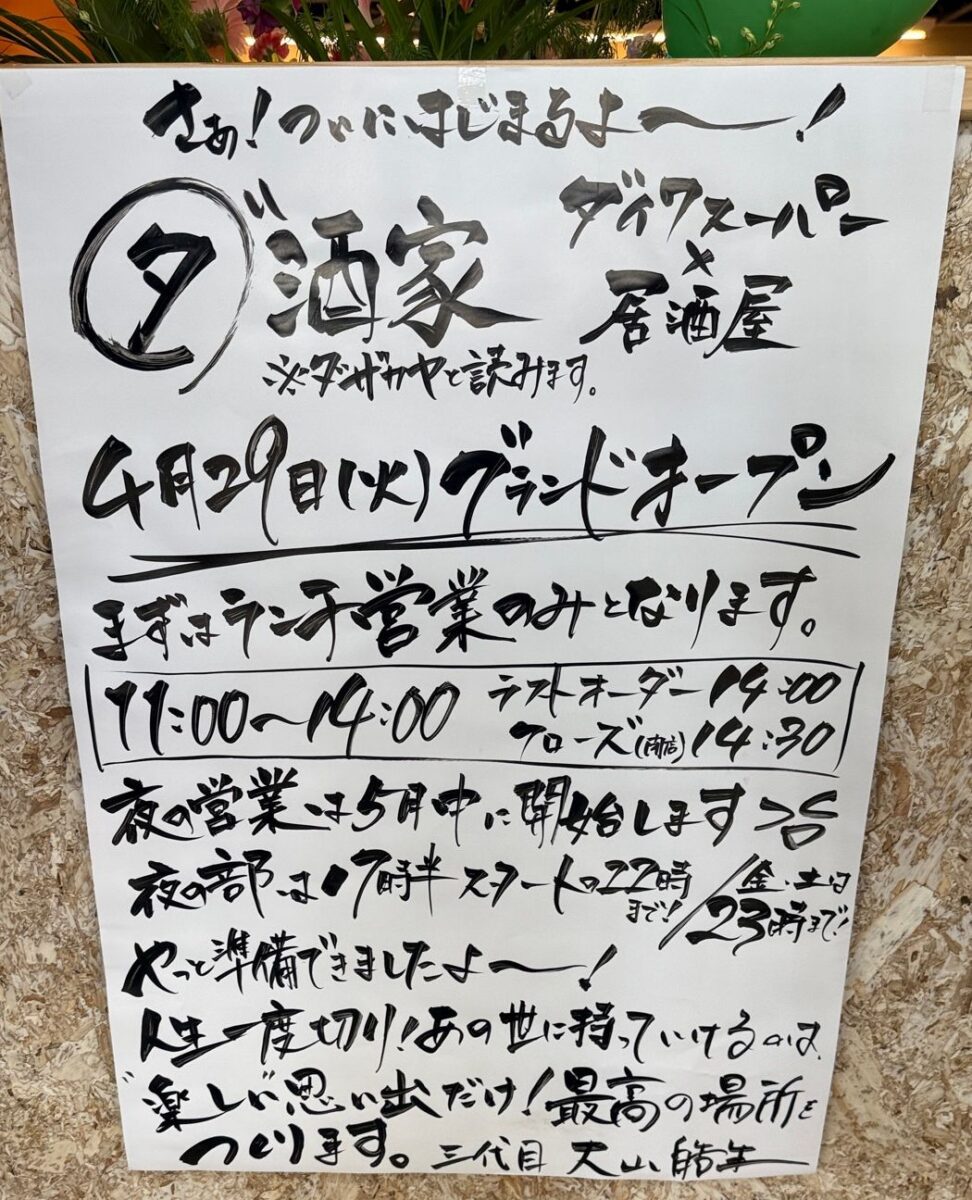 さぁ!ついにはじまるよ〜!
ダ酒家
ダイワスーパー
×
居酒屋
※ダザカヤと読みます。
4月29日(火)グランドオープン
まずはランチ営業のみとなります。
11:00〜14:00
ラストオーダー14:00
クローズ(閉店)14:30
夜の営業は5月中に開始します
夜の部は17時半スタートの22時まで!/金・土は23時まで!
やっと準備できましたよ〜!
人生一度切り!あの世に持っていけるのは、
"楽しい"思い出だけ!最高の場所を
つくります。三代目 大山